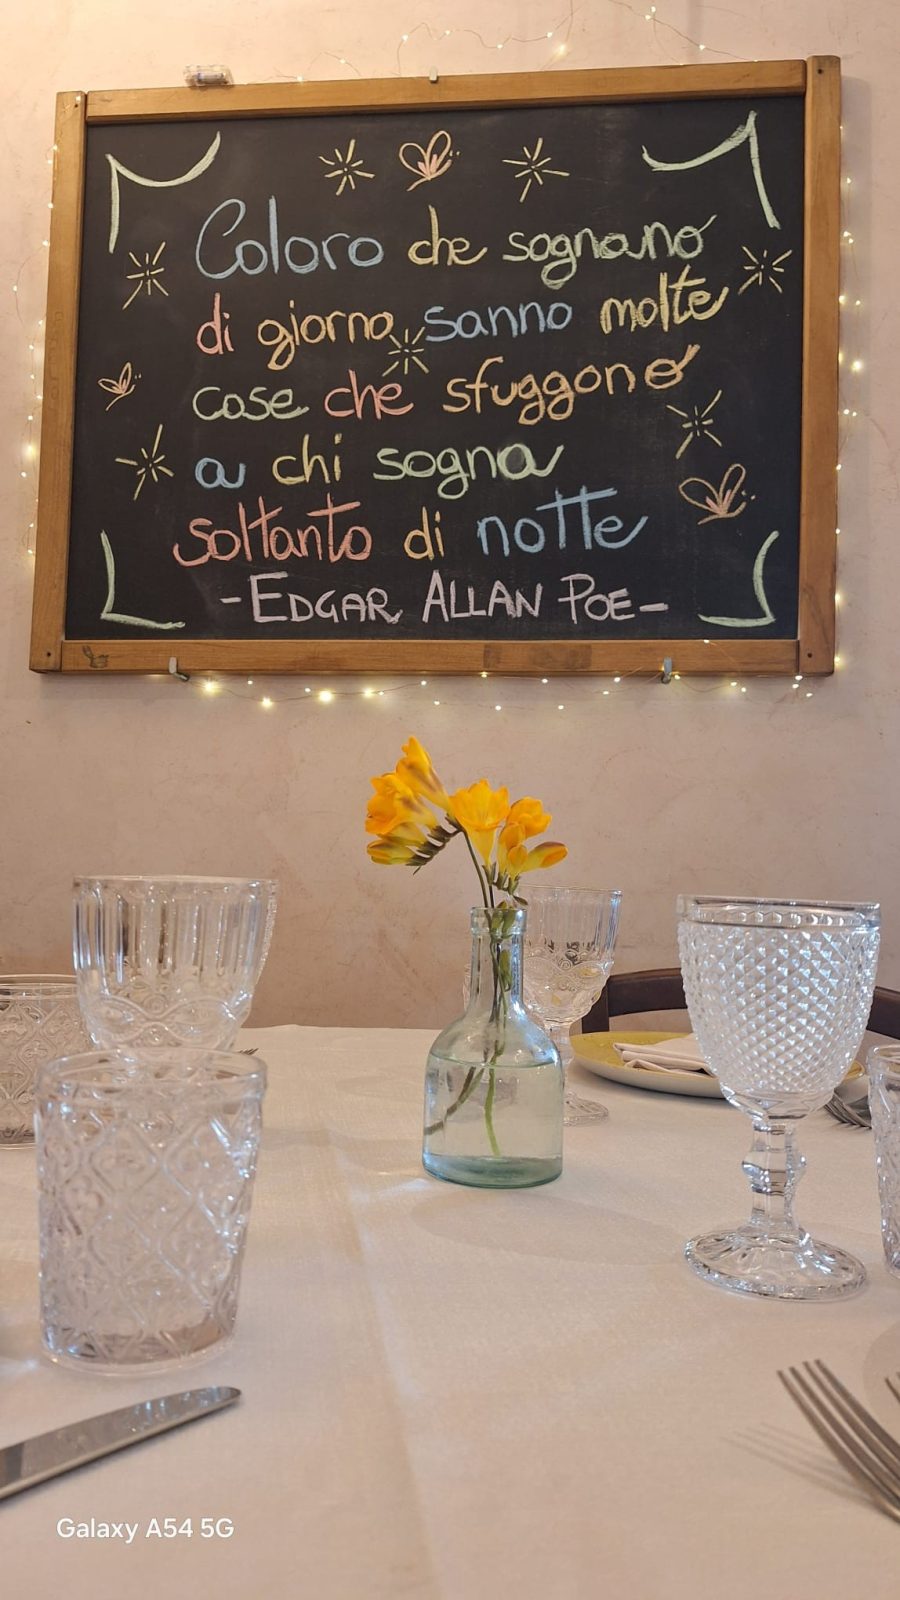 Coloro che sognano
di giorno sanno molte
cose che sfuggono
a chi sogna
soltanto di notte
-EDGAR ALLAN POE-
Galaxy A54 5G